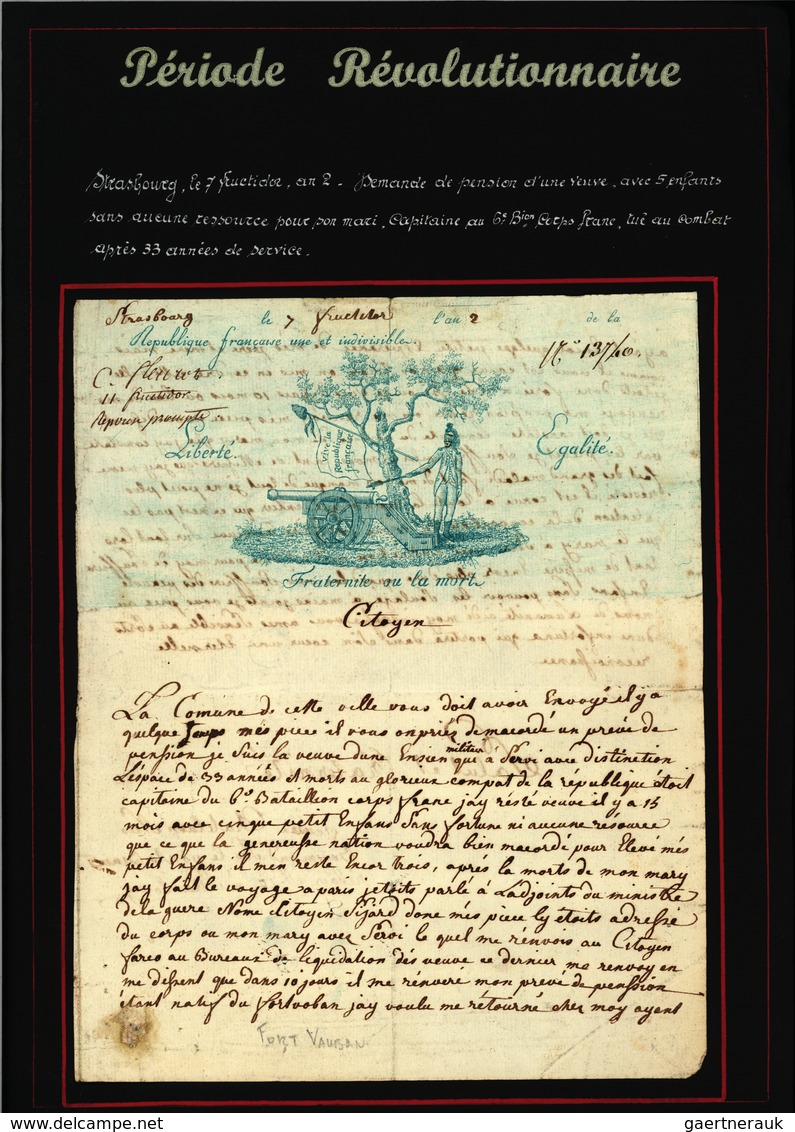 Période Révolutionnaire
Strasbourg, le 7 fructidor, an 2 - Demande de pension d'une veuve, avec 5 enfants
sans aucune ressource pour son mari, Capitaine au 6e Bion Corps franc, tué au combat
après 33 années de service.
Strasbourg le 7 fructidor l'an 2 de la
Republique française une et indivisible.
N° 13740.
C.
11 fructidor
Liberté. Egalité.
Vive la
Republique
française
Fraternite ou la mort
Citoyen
La Comune de cette ville vous doit avoir Envoyé il y a
quelque temps més piece il vous on priés demacordé un preve de
pension je suis la veuve dune Ensien militair qui à Servi avec distinction
L'éspace de 33 années et morts au glorieux compat de la république étoit
capitaine du 6e Bataillion corps franc jay résté veuve il y a 15
mois avec cinque petit Enfans Sans fortune ni aucune résource
que ce que la genereusse nation voudra bien macordé pour Elevé més
petit Enfans il mén reste Encor trois, aprés la morts de mon mary
jay fait le voyage a paris jetoits parlé à Ladjoints du ministre
de la guere Nome Citoyen Sijard donc més piece ly étoits adressé
du corps ou mon mary avez Servi le quel me rénvois au Citoyen
fareo au Bureaux de liquidation dés veuve ce dernier ma renvoy en
me disent que dans 10 jours il me rénvere mon preve de pension
étant natif du fortvoban jay voulu me rétourné cher moy ayent
FORT VAUBAN
gaertnerauk